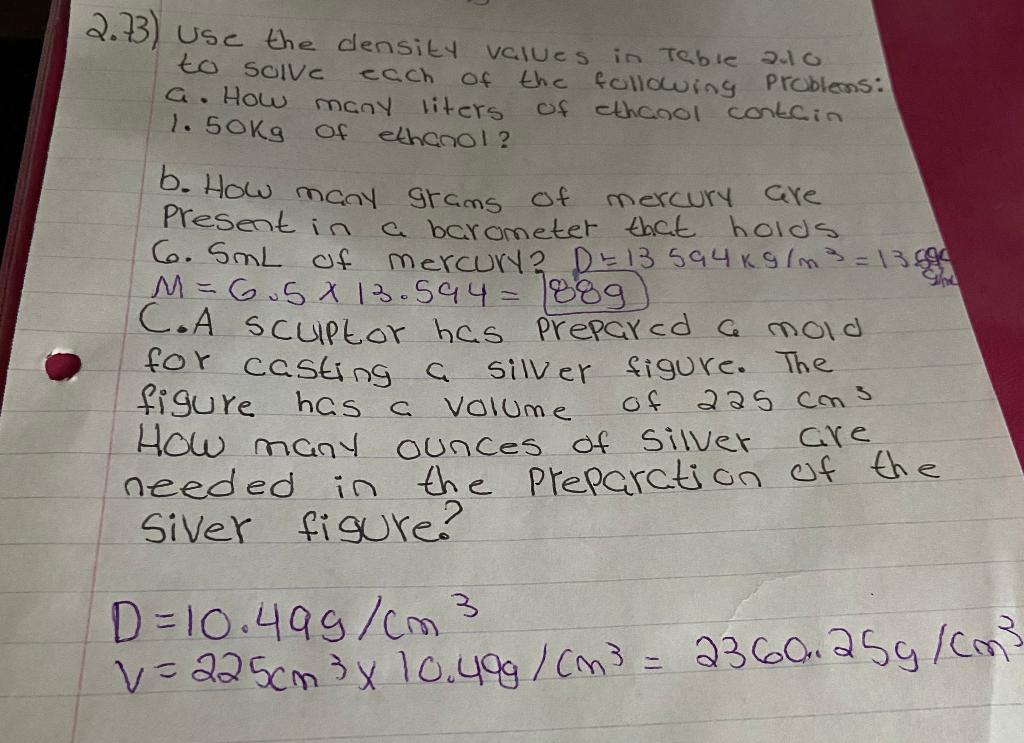 2.73) Use the density values in Table 2.10
to solve each of the following Problems:
a. How many liters of ethanol contain
1.50Kg of ethanol?
b. How many grams of mercury are
Present in a barometer that holds
6.5mL of mercury? D=13 594 kg/m³ = 13.594
g/mL
M = 6.5 x 13.594 = 88g
C.A sculptor has prepared a mold
for casting a silver figure. The
figure has a volume of 225 cm³
How many ounces of silver are
needed in the preparation of the
Siver figure?
D=10.49g/cm³
V=225cm³x10.49g/cm³ = 2360.25g/cm³